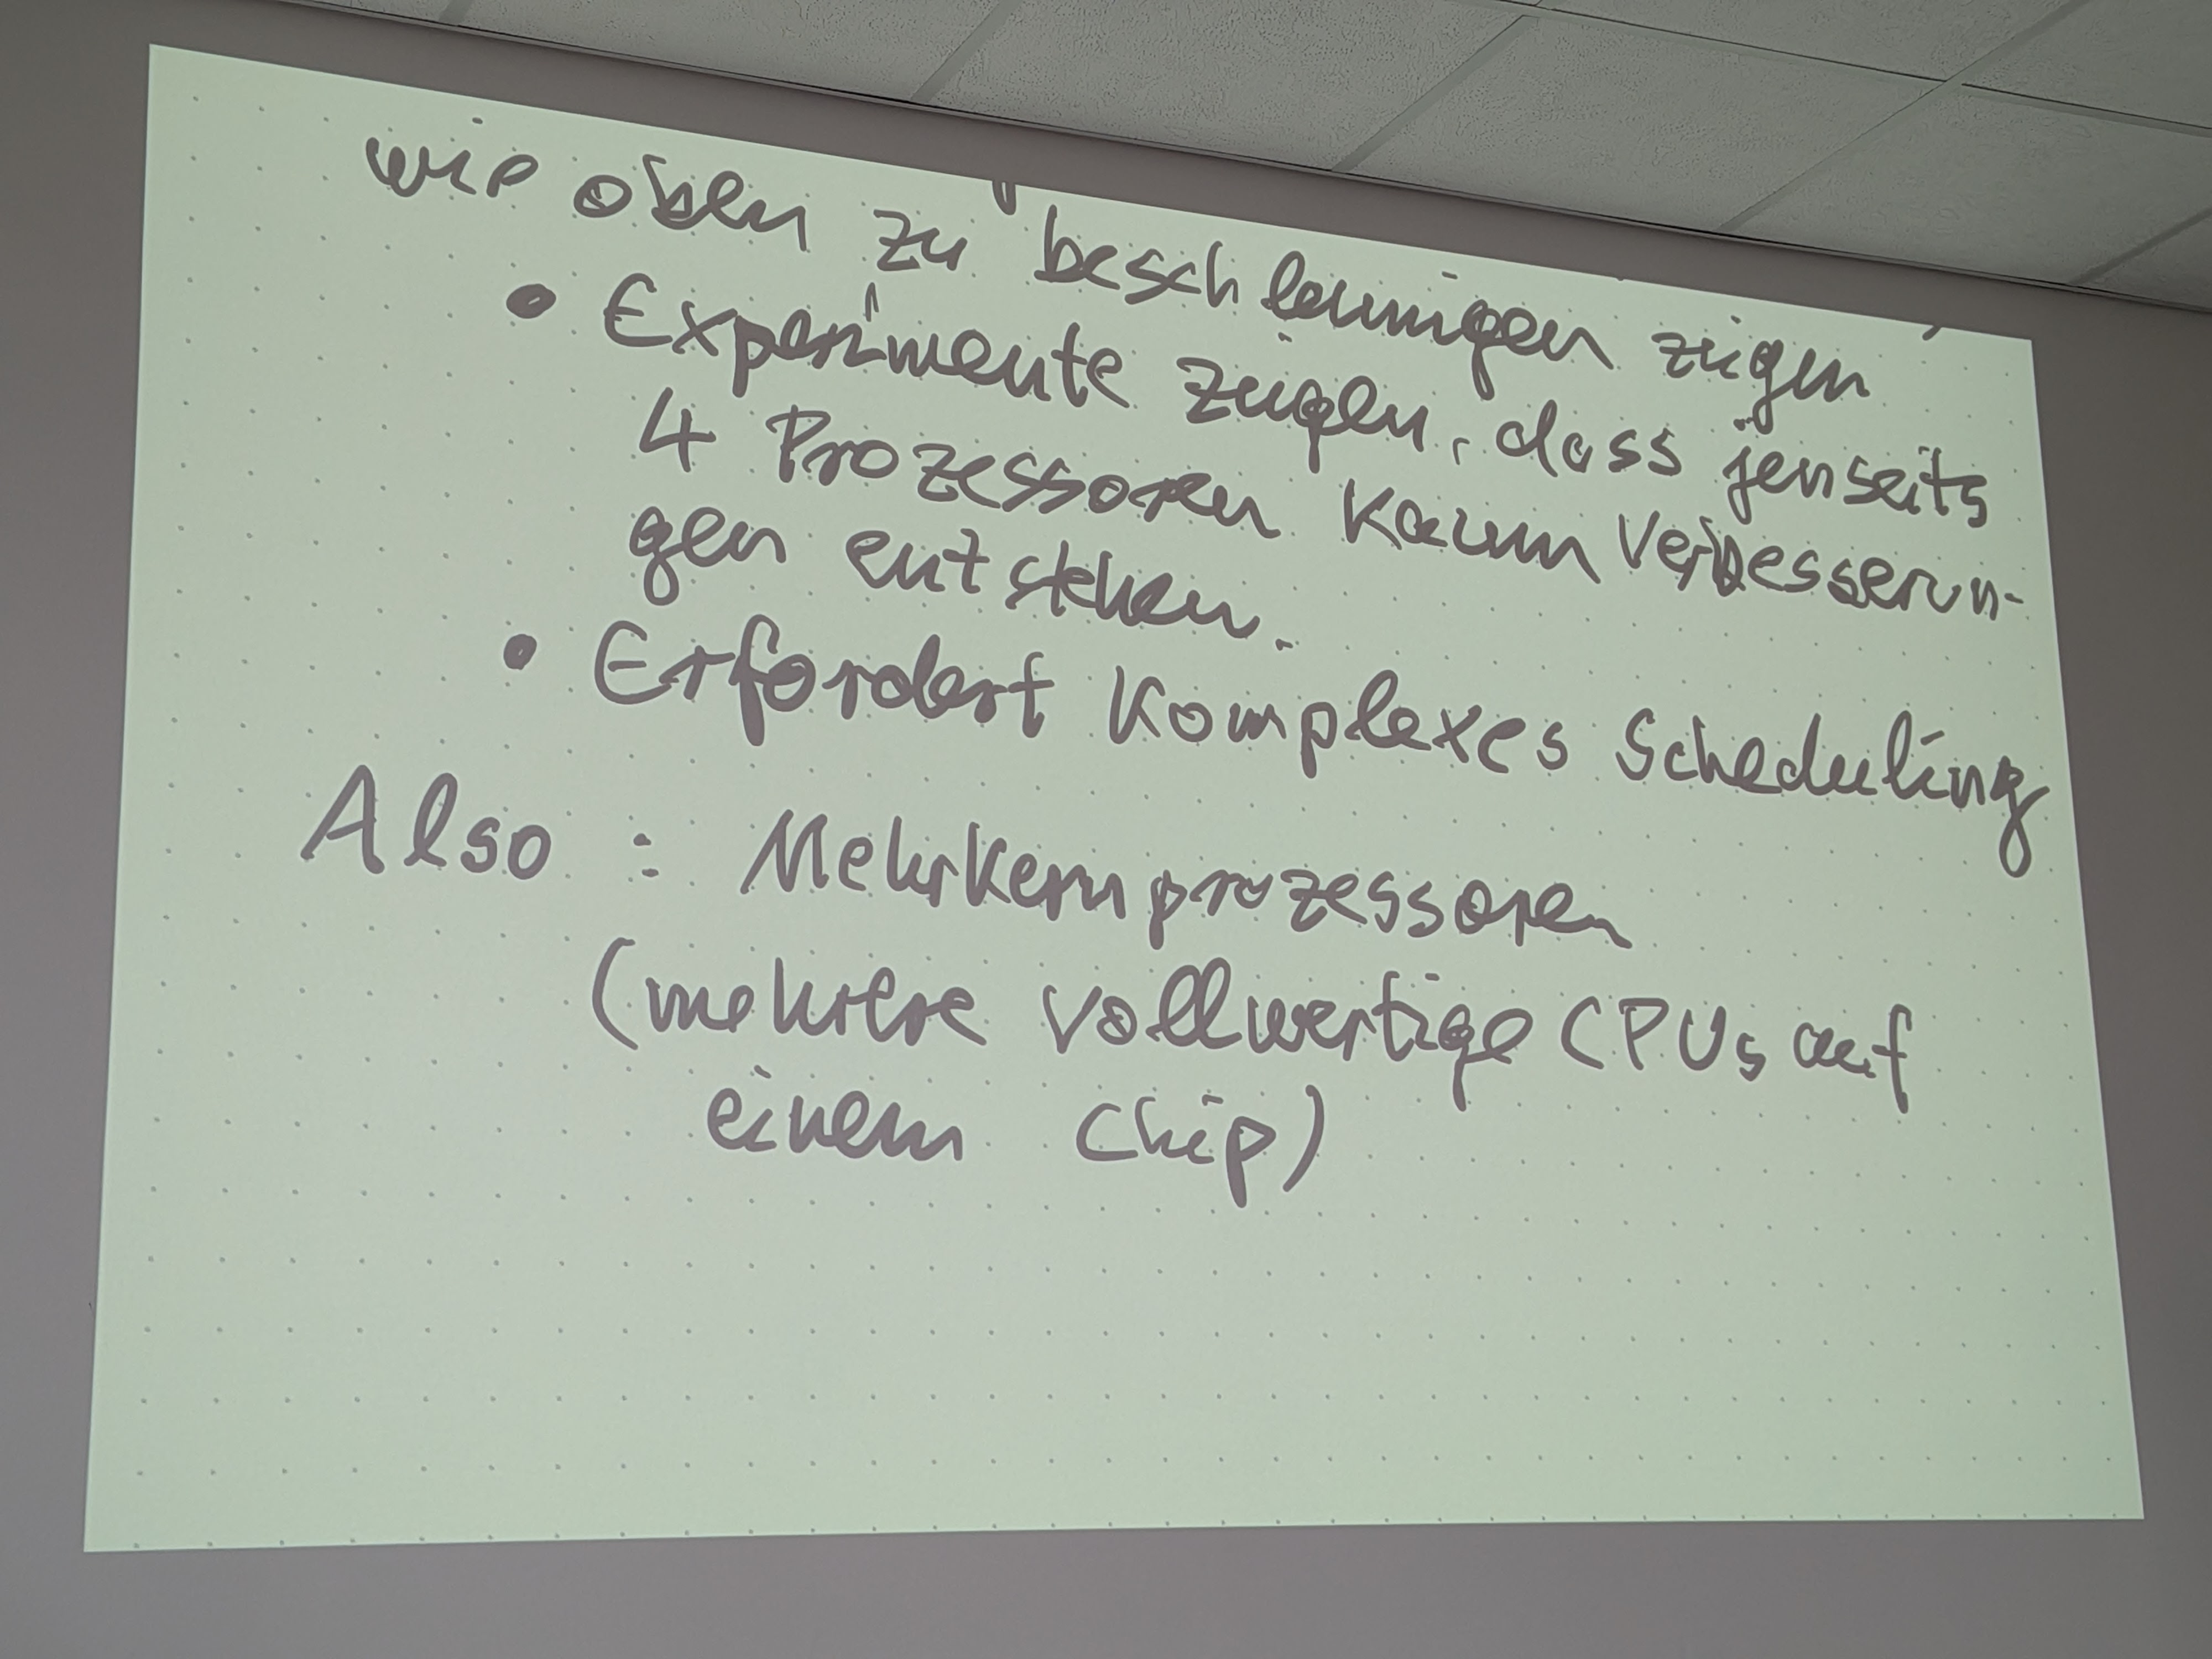 wie oben zu beschleunigen zeigen
• Experimente zeigen, dass jenseits
4 Prozessoren kaum Verbesserun-
gen entstehen.
• Erfordert komplexes Scheduling
Also : Mehrkernprozessoren
(mehrere vollwertige CPUs auf
einem Chip)